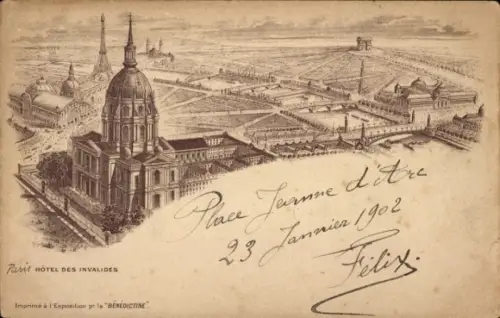 Place Jeanne d'Arc
23 Janvier 1902
Félix.
Paris HÔTEL DES INVALIDES
Imprimé à l'Exposition pr la "BÉNÉDICTINE".